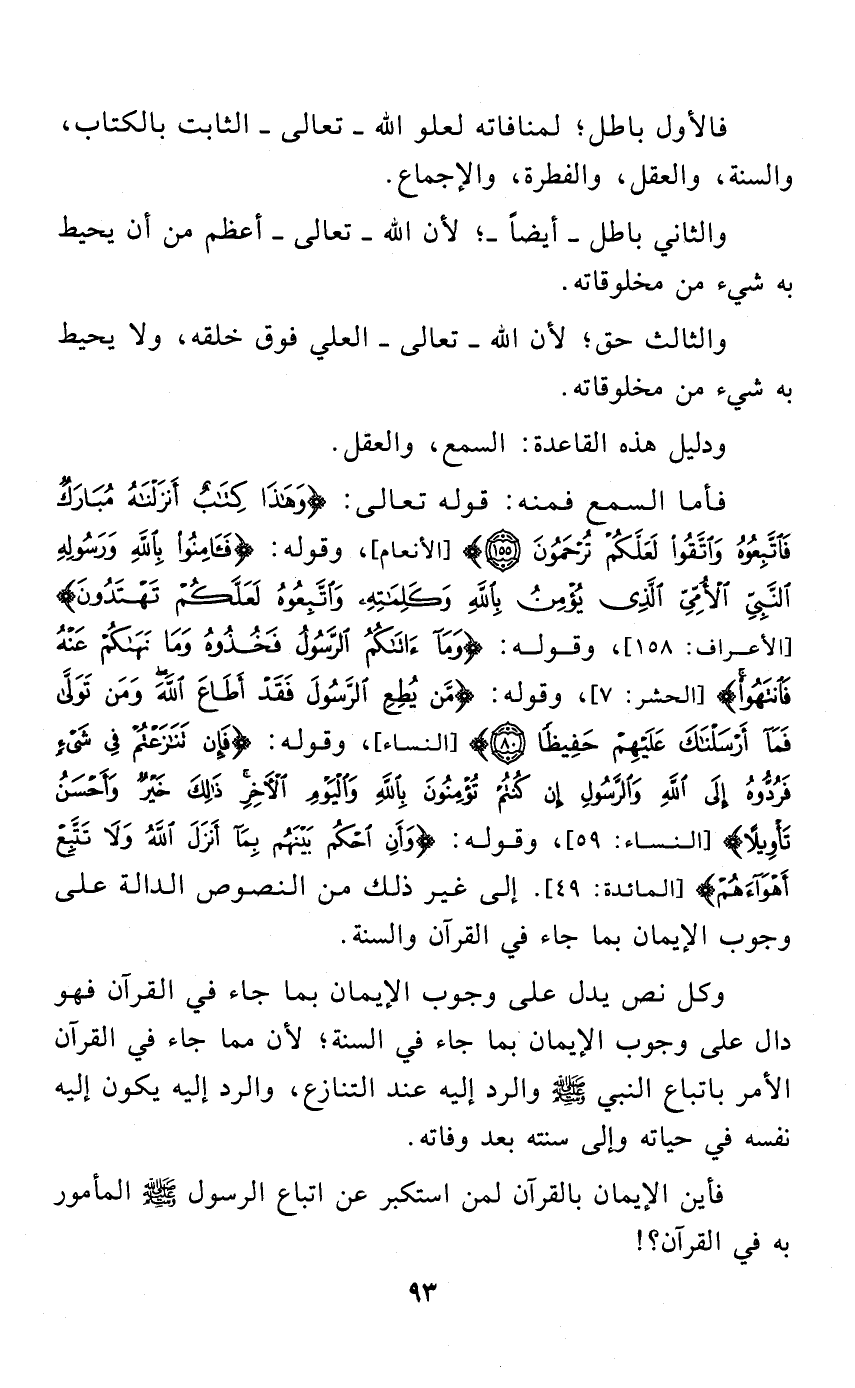 فالأول باطل؛ لمنافاته لعلو الله ـ تعالى ـ الثابت بالكتاب،
والسنة، والعقل، والفطرة، والإجماع.
والثاني باطل ـ أيضاً ـ؛ لأن الله ـ تعالى ـ أعظم من أن يحيط
به شيء من مخلوقاته.
والثالث حق؛ لأن الله ـ تعالى ـ العلي فوق خلقه، ولا يحيط
به شيء من مخلوقاته.
ودليل هذه القاعدة: السمع، والعقل.
فأما السمع فمنه: قوله تعالى: ﴿وَهَٰذَا كِتَٰبٌ أَنزَلۡنَٰهُ مُبَارَكٞ
فَٱتَّبِعُوهُ وَٱتَّقُواْ لَعَلَّكُمۡ تُرۡحَمُونَ ۝١٥٥﴾ [الأنعام]، وقوله: ﴿فَـَٔامِنُواْ بِٱللَّهِ وَرَسُولِهِ
ٱلنَّبِيِّ ٱلۡأُمِّيِّ ٱلَّذِي يُؤۡمِنُ بِٱللَّهِ وَكَلِمَٰتِهِۦ وَٱتَّبِعُوهُ لَعَلَّكُمۡ تَهۡتَدُونَ﴾
[الأعراف: ١٥٨]، وقوله: ﴿وَمَآ ءَاتَىٰكُمُ ٱلرَّسُولُ فَخُذُوهُ وَمَا نَهَىٰكُمۡ عَنۡهُ
فَٱنتَهُواْۚ﴾ [الحشر: ٧]، وقوله: ﴿مَّن يُطِعِ ٱلرَّسُولَ فَقَدۡ أَطَاعَ ٱللَّهَۖ وَمَن تَوَلَّىٰ
فَمَآ أَرۡسَلۡنَٰكَ عَلَيۡهِمۡ حَفِيظٗا ۝٨٠﴾ [النساء]، وقوله: ﴿فَإِن تَنَٰزَعۡتُمۡ فِي شَيۡءٖ
فَرُدُّوهُ إِلَى ٱللَّهِ وَٱلرَّسُولِ إِن كُنتُمۡ تُؤۡمِنُونَ بِٱللَّهِ وَٱلۡيَوۡمِ ٱلۡأٓخِرِۚ ذَٰلِكَ خَيۡرٞ وَأَحۡسَنُ
تَأۡوِيلًا﴾ [النساء: ٥٩]، وقوله: ﴿وَأَنِ ٱحۡكُم بَيۡنَهُم بِمَآ أَنزَلَ ٱللَّهُ وَلَا تَتَّبِعۡ
أَهۡوَآءَهُمۡ﴾ [المائدة: ٤٩]. إلى غير ذلك من النصوص الدالة على
وجوب الإيمان بما جاء في القرآن والسنة.
وكل نص يدل على وجوب الإيمان بما جاء في القرآن فهو
دال على وجوب الإيمان بما جاء في السنة؛ لأن مما جاء في القرآن
الأمر باتباع النبي ﷺ والرد إليه عند التنازع، والرد إليه يكون إليه
نفسه في حياته وإلى سنته بعد وفاته.
فأين الإيمان بالقرآن لمن استكبر عن اتباع الرسول ﷺ المأمور
به في القرآن؟!
٩٣